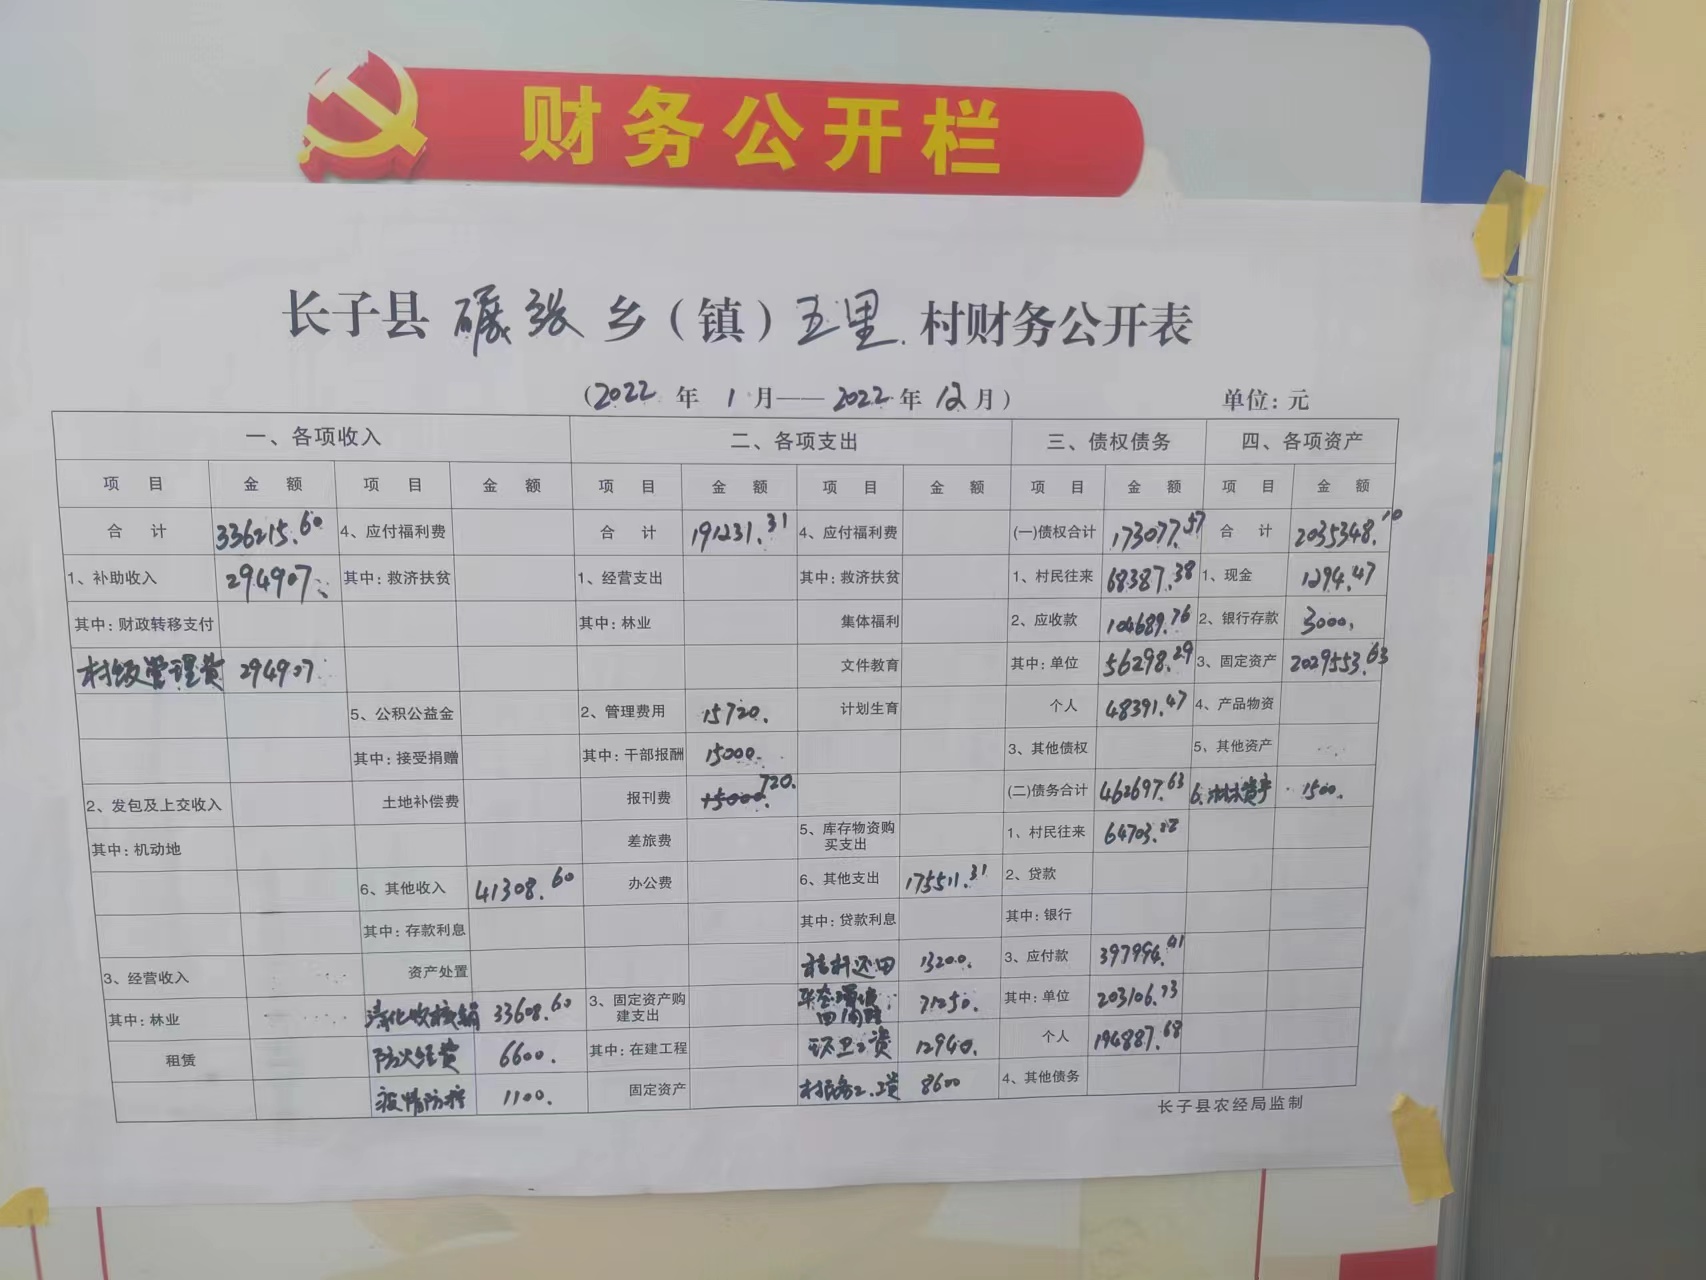 财务公开栏
长子县 碾张 乡（镇）五里 村财务公开表
（2022 年 1 月——2022 年 12 月） 单位：元
一、各项收入 二、各项支出 三、债权债务 四、各项资产
项 目 金 额 项 目 金 额 项 目 金 额 项 目 金 额 项 目 金 额 项 目 金 额
合 计 336215.60 4、应付福利费 合 计 191231.31 4、应付福利费 (一)债权合计 173077.57 合 计 2035348.10
1、补助收入 294907. 其中：救济扶贫 1、经营支出 其中：救济扶贫 1、村民往来 68387.38 1、现金 1294.47
其中：财政转移支付 其中：林业 集体福利 2、应收款 104689.76 2、银行存款 3000.
村级管理费 294907. 文件教育 其中：单位 56298.29 3、固定资产 2029553.63
5、公积公益金 2、管理费用 15720. 计划生育 个人 48391.47 4、产品物资
其中：接受捐赠 其中：干部报酬 15000. 3、其他债权 5、其他资产
2、发包及上交收入 土地补偿费 报刊费 15000. 720. (二)债务合计 462697.63 6. 林木资产 1500.
其中：机动地 差旅费 5、库存物资购买支出 1、村民往来 64703.22
6、其他收入 41308.60 办公费 6、其他支出 175511.31 2、贷款
其中：存款利息 其中：贷款利息 其中：银行
3、经营收入 资产处置 秸秆还田 13200. 3、应付款 397994.41
其中：林业 收核销 33608.60 3、固定资产购建支出 田间路 71250. 其中：单位 203106.73
租赁 防火经费 6600. 其中：在建工程 环卫工资 12940. 个人 194887.68
疫情防控 1100. 固定资产 村民务工工资 8600 4、其他债务
长子县农经局监制